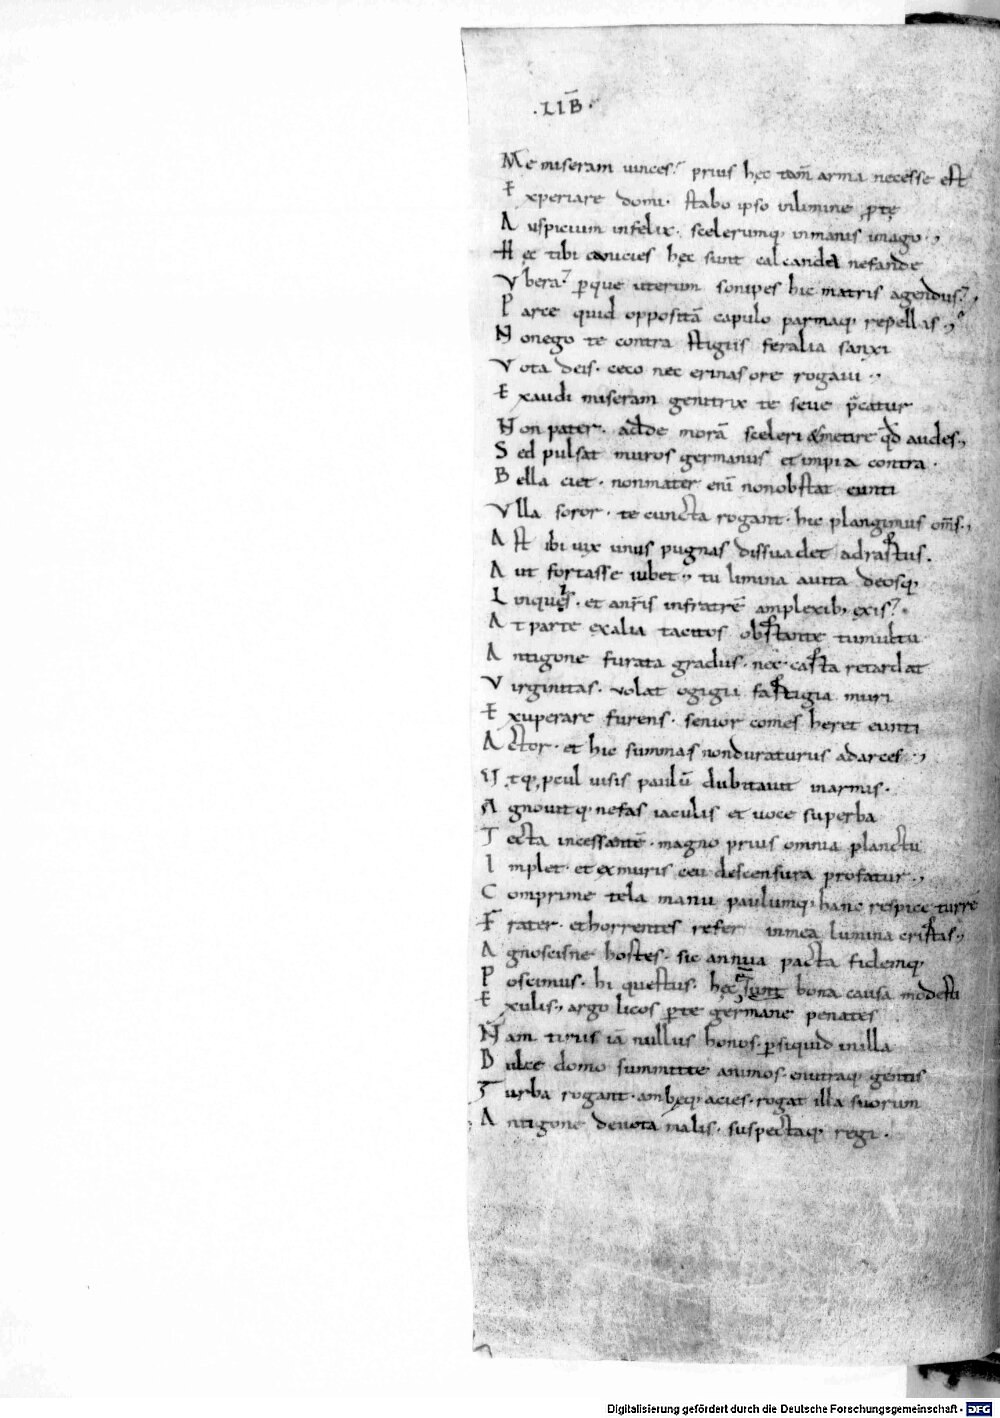 .LIB̄.
Me miseram uinces? prius hęc tam̄ arma necesse est
Experiare domi. stabo ipso inlimine portę
Auspicium infelix. scelerumq; inmanis imago.,
Hęc tibi canicies hęc sunt calcanda nefande
Vbera? perque uterum sonipes hic matris agendus?,
Parce quid oppositā capulo parmaq; repellas.,
Nonego te contra stigiis feralia sanxi
Vota deis. ceco nec erinas ore rogaui.,
Exaudi miseram genitrix te seue p̄catur
Non pater. adde morā sceleri &metire qđ audes.,
Sed pulsat muros germanus et impia contra.
Bella ciet. nonmater enī nonobstat eunti
Vlla soror. te cuncta rogant. hic plangimus om̄s.,
Ast ibi uix unus pugnas dissuadet adrastus.
Aut fortasse iubet., tu limina auita deosq;
Linques. et anr̄is infratrē amplexib; exis?.
At parte exalia tacitos obstante tumultu
Antigone furata gradus. nec casta retardat
Virginitas. volat ogigii fastigia muri
Exuperare furens. senior comes heret eunti
Actor. et hic summas nonduraturus adarces.,
Vtq; pcul uisis paulū dubitauit inarmis.
Agnouitq; nefas iaculis et uoce superba
Tecta incessantē. magno prius omnia planctu
Implet. et exmuris ceu descensura profatur.,
Comprime tela manu paulumq; hanc respice turre
Frater. ethorrentes refer inmea lumina cristas.,
Agnoscisne hostes. sic annua pacta fidemq;
Poscimus. hi questus. hęc sunt bona causa modesti
Exulis., argolicos per te germane penates
Nam tirus iā nullus honos. per siquid inilla
Dulce domo summitte animos. en utraq; gentis
Turba rogant. ambęq; acies. rogat illa suorum
Antigone deuota malis. suspectaq; regi.
Digitalisierung gefördert durch die Deutsche Forschungsgemeinschaft - DFG